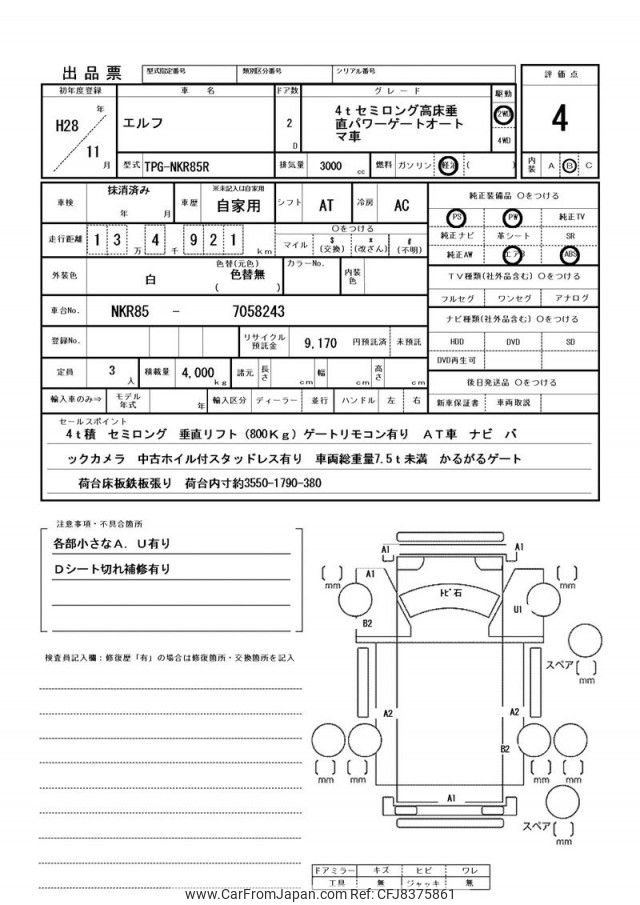 出品票 型式指定番号 類別区分番号 シリアル番号
評価点
4
内装 A B C
初年度登録 車名 ドア数 グレード 駆動
H28 年 11 月
エルフ
2 D
4tセミロング高床垂
直パワーゲートオート
マ車
2WD
4WD
型式 TPG-NKR85R 排気量 3000 cc 燃料 ガソリン 軽油 ( )
車検 抹消済み 年 月 車歴 ※未記入は自家用 自家用 シフト AT 冷房 AC
走行距離 13万 4千 921 km
〇をつける
マイル $(交換) *(改ざん) #(不明)
外装色 白 色替(元色) 色替無 ( ) カラーNo. 内装色
車台No. NKR85 - 7058243
登録No. リサイクル預託金 9,170 円預託済 未預託
定員 3 人 積載量 4,000 kg 諸元 長さ cm 幅 cm 高さ cm
輸入車のみ⇒ モデル年式 年 輸入区分 ディーラー 並行 ハンドル 左 右
純正装備品 〇をつける
PS PW 純正TV
純正ナビ 革シート SR
純正AW エアB ABS
TV種類(社外品含む) 〇をつける
フルセグ ワンセグ アナログ
ナビ種類(社外品含む) 〇をつける
HDD DVD SD
DVD再生可
後日発送品 〇をつける
新車保証書 車両取説
セールスポイント
4t積 セミロング 垂直リフト(800Kg)ゲートリモコン有り AT車 ナビ バ
ックカメラ 中古ホイル付スタッドレス有り 車両総重量7.5t未満 かるがるゲート
荷台床板鉄板張り 荷台内寸約3550-1790-380
注意事項・不具合箇所
各部小さなA. U有り
Dシート切れ補修有り
検査員記入欄:修復歴「有」の場合は修復箇所・交換箇所を記入
A1 A1
A1
トビ石
U1
B2
mm mm
スペア
mm
A2 A2
B2
mm mm mm mm
A1
スペア
mm
ドアミラー キズ ヒビ ワレ
工具 無 ジャッキ 無
www.CarFromJapan.com Ref: CFJ8375861